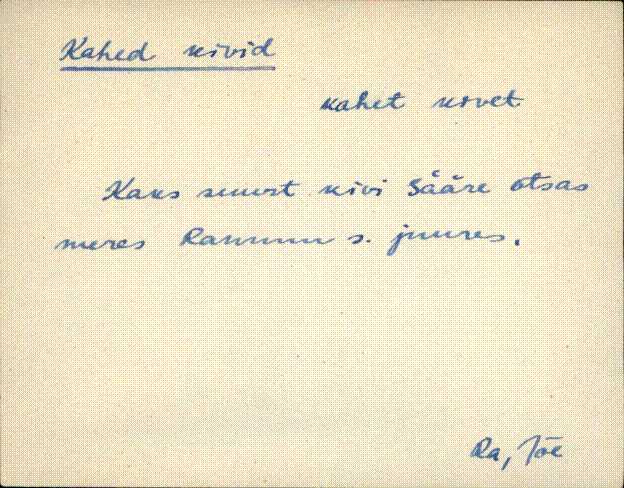 Kahed kivid
kahet kivet
Kaks suurt kivi Sääre otsas
meres Rannu s. juures.
Ra, Jõe